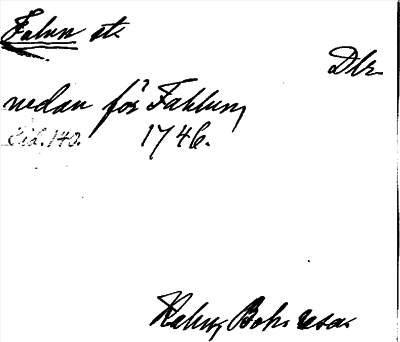 Falun st.
Dlr.
nedan för Fahlun,
Sid. 140. 1746.
Hülph. Boh. resa.